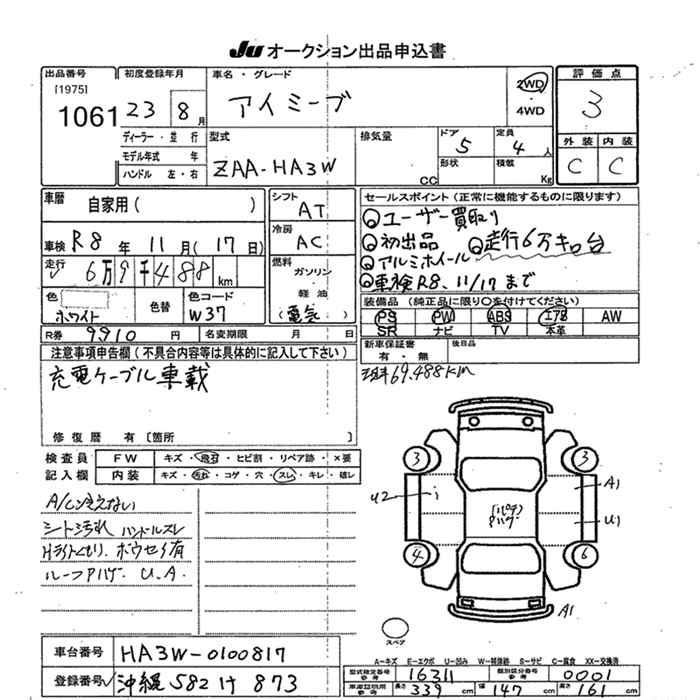 JU オークション出品申込書
出品番号
[1975]
1061
初度登録年月
23 8月
車名・グレード
アイミーブ
2WD
・
4WD
評価点
3
外装 内装
C C
ディーラー・並行
モデル年式 年
ハンドル 左・右
型式
ZAA-HA3W
排気量
CC
ドア
5
定員
4人
形状
積載
Kg
車歴
自家用( )
車検 R8年11月(17日)
走行
6万9千488km
色
ホワイト
色替
色コード
W37
シフト
AT
冷房
AC
燃料
ガソリン
・
軽油
(電気)
R券 9910円
名変期限 月 日
セールスポイント(正常に機能するものに限ります)
ユーザー買取り
初出品
走行6万キロ台
アルミホイール
車検R8、11/17まで
装備品(純正品に限り○を付けてください)
PS PW ABS エアB AW
SR ナビ TV 本革
新車保証書
有・無
後日品
注意事項申告欄(不具合内容等は具体的に記入して下さい)
充電ケーブル車載
修復歴 有〔箇所 〕
69.488km
検査員
記入欄
FW
キズ・飛石・ヒビ割・リペア跡・×要
内装
キズ・汚れ・コゲ・穴・スレ・キレ・破レ
A/C冷えない
シート汚れ ハンドルスレ
Hライトくもり、ボウセイ有
ルーフPハゲ、U.A
3
3
U2
i
A1
U1
Pハゲ
4
6
A1
スペア
車台番号 HA3W-0100817
登録番号 沖縄 582 け 873
A-キズ E-エクボ U-凹み W-補修跡 S-サビ C-腐食 XX-交換済
型式指定番号
参考
16311
類別区分番号
参考
0001
車庫証明用
参考
長さ 339cm 幅 147cm 高さ 161cm